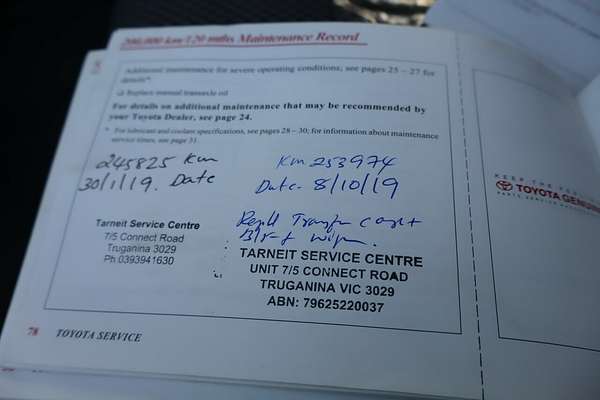 200,000 km/120 mths Maintenance Record
Additional maintenance for severe operating conditions; see pages 25 – 27 for
details*.
❏ Replace manual transaxle oil
For details on additional maintenance that may be recommended by
your Toyota Dealer, see page 24.
* For lubricant and coolant specifications, see pages 28 – 30; for information about maintenance
service times, see page 31.
245825 Km
30/1/19. Date
Tarneit Service Centre
7/5 Connect Road
Truganina 3029
Ph 0393941630
Km 253974
Date- 8/10/19
TARNEIT SERVICE CENTRE
UNIT 7/5 CONNECT ROAD
TRUGANINA VIC 3029
ABN: 79625220037
78 TOYOTA SERVICE
KEEP THE
TOYOTA GENUINE